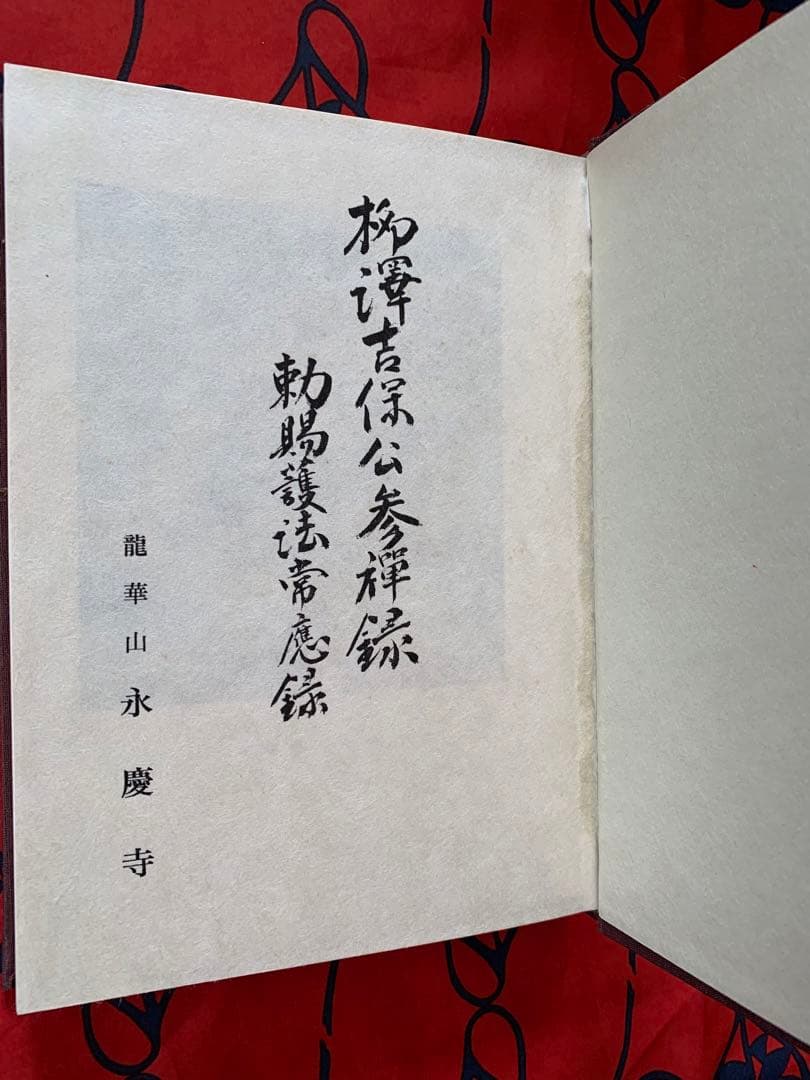 柳澤吉保公参禪録
勅賜護法常應録
龍華山永慶寺